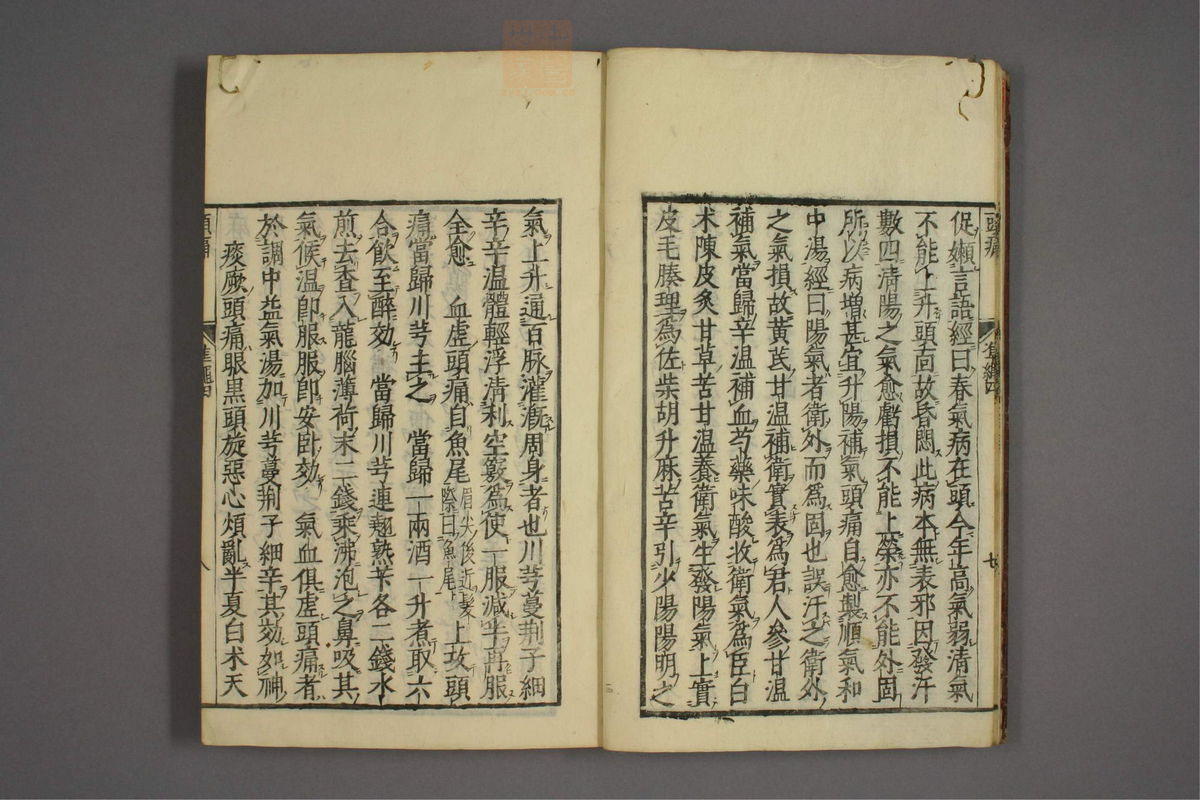 頭痛
促嬾言語經曰春氣病在頭今年高氣弱清氣
不能上升頭面故昏悶此病本無表邪因發汗
數四清陽之氣愈虧損不能上榮亦不能外固
所以病增甚宜升陽補氣頭痛自愈製順氣和
中湯經曰陽氣者衛外而為固也誤汗之衛外
之氣損故黃芪甘溫補衛實表為君人參甘溫
補氣當歸辛溫補血芍藥味酸收衛氣為臣白
术陳皮炙甘草苦甘溫養衛氣生發陽氣上實
皮毛腠理為佐柴胡升麻苦辛引少陽陽明之
七
氣上升通百脉灌溉周身者也川芎蔓荆子細
辛辛溫體輕浮清利空竅為使一服減半再服
全愈　血虛頭痛自魚尾眉尖後近髮際曰魚尾上攻頭
痛當歸川芎主之　當歸一兩酒一升煮取六
合飲至醉効　當歸川芎連翹熟苄各二錢水
煎去査入龍腦薄荷末二錢乘沸泡之鼻吸其
氣候溫卽服服卽安臥効　氣血俱虛頭痛者
於調中益氣湯加川芎蔓荆子細辛其効如神
痰厥頭痛眼黑頭旋惡心煩亂半夏白术天
頭痛
八